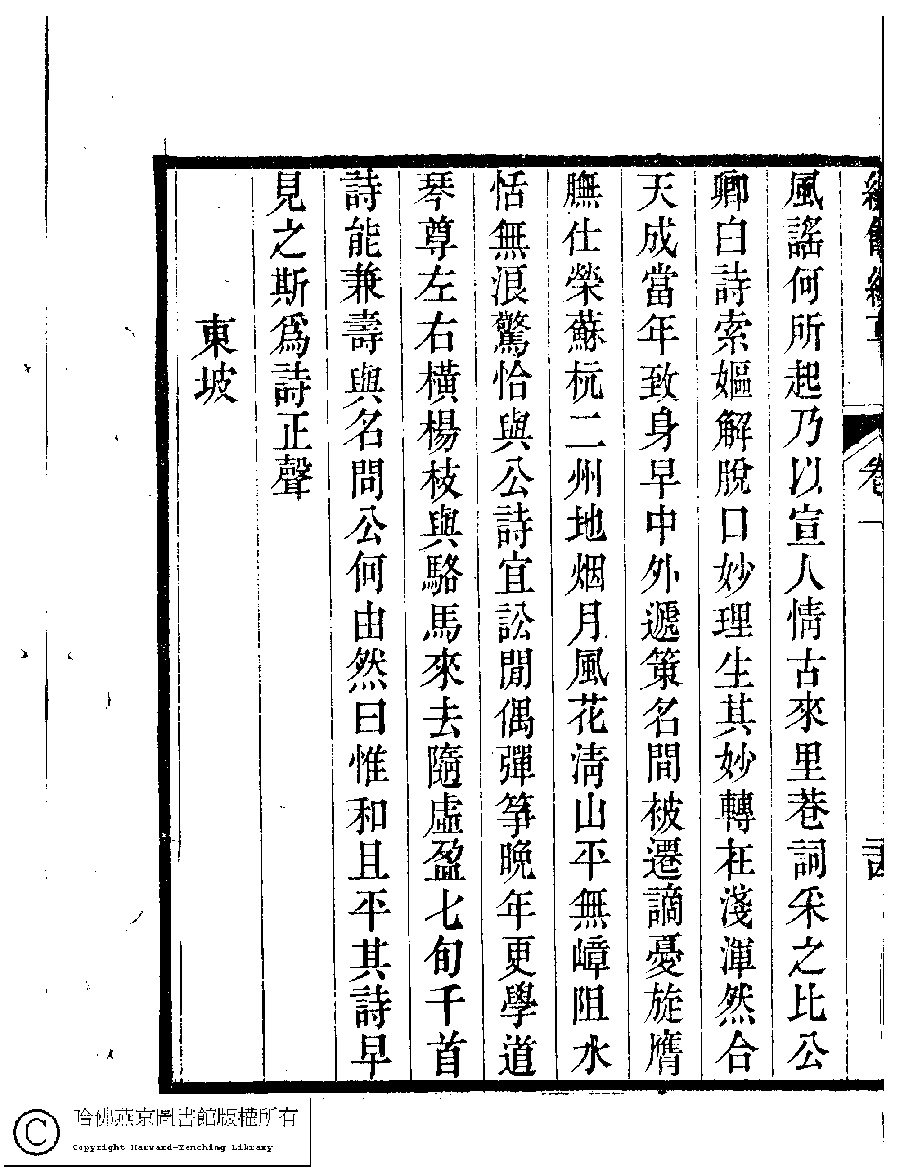 卷一
風謠何所起乃以宣人情古來里巷詞采之比公
卿白詩索嫗解脫口妙理生其妙轉在淺渾然合
天成當年致身早中外遞策名間被遷謫憂旋膺
膴仕榮蘇杭二州地烟月風花清山平無嶂阻水
恬無浪驚恰與公詩宜訟閒偶彈箏晚年更學道
琴尊左右橫楊枝與駱馬來去隨虛盈七旬千首
詩能兼壽與名問公何由然曰惟和且平其詩早
見之斯爲詩正聲
東坡
哈佛燕京圖書館版權所有
Copyright Harvard-Yenching Library